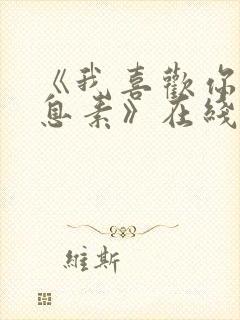 《我喜歡你
息素》在綫
維斯